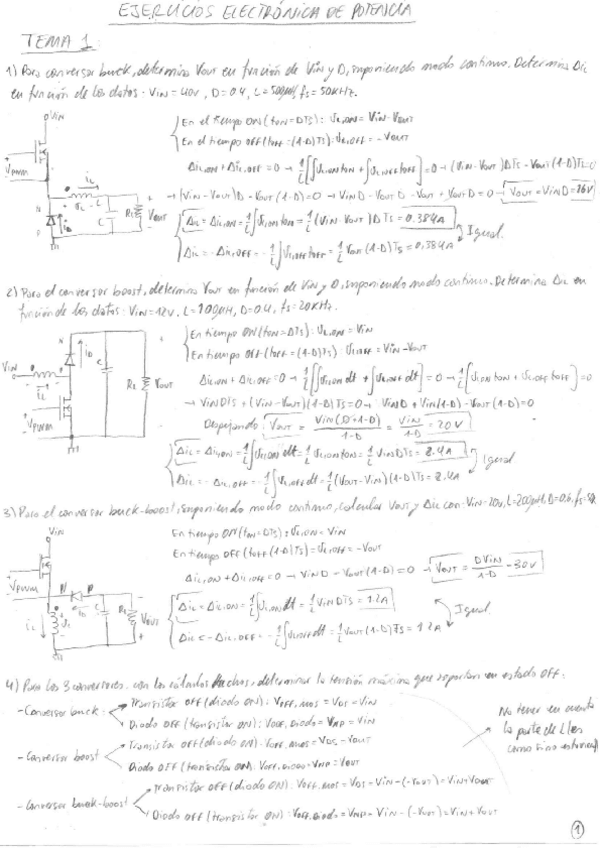 EJERCICIOS ELECTRÓNICA DE POTENCIA
TEMA 1:
1) Para conversor buck, determina Vout en función de Vin y D, imponiendo modo continuo. Determina ΔiL
en función de los datos: Vin = 40V, D=0.4, L=500μH, fs=50KHz.
En el tiempo ON (ton=DTs): VL,ON = Vin - Vout
En el tiempo OFF (toff=(1-D)Ts): VL,OFF = -Vout
ΔiL,ON + ΔiL,OFF = 0 → 1/L [∫VL,ON ton + ∫VL,OFF toff] = 0 → (Vin - Vout)DTs - Vout(1-D)Ts=0
→ (Vin - Vout)D - Vout(1-D)=0 → VinD - VoutD - Vout + VoutD = 0 → Vout = VinD = 16V
ΔiL = ΔiL,ON = 1/L ∫VL,ON ton = 1/L (Vin - Vout)DTs = 0.384A
ΔiL = -ΔiL,OFF = -1/L ∫VL,OFF toff = 1/L Vout(1-D)Ts = 0,384A
Igual
Vin
VPWM
iL
VL
L
C
RL
Vout
N
P
iD
2) Para el conversor boost, determina Vout en función de Vin y D, imponiendo modo continuo. Determina ΔiL en
función de los datos: Vin=12V, L=100μH, D=0.4, fs=20KHz.
En tiempo ON (ton=DTs): VL,ON = Vin
En tiempo OFF (toff=(1-D)Ts): VL,OFF = Vin - Vout
ΔiL,ON + ΔiL,OFF = 0 → 1/L [∫VL,ON dt + ∫VL,OFF dt] = 0 → 1/L [VL,ON ton + VL,OFF toff] = 0
→ VinDTs + (Vin - Vout)(1-D)Ts = 0 → VinD + Vin(1-D) - Vout(1-D)=0
Despejando: Vout = Vin(D+1-D)/1-D = Vin/1-D = 20V
ΔiL = ΔiL,ON = 1/L ∫VL,ON dt = 1/L VL,ON ton = 1/L VinDTs = 2.4A
ΔiL = -ΔiL,OFF = -1/L ∫VL,OFF dt = 1/L (Vout - Vin)(1-D)Ts = 2,4A
Igual
Vin
iL
VPWM
iD
C
RL
Vout
3) Para el conversor buck-boost, imponiendo modo continuo, calcular Vout y ΔiL con: Vin=20V, L=200μH, D=0.6,
En tiempo ON (ton=DTs): VL,ON = Vin
En tiempo OFF (toff(1-D)Ts): VL,OFF = -Vout
ΔiL,ON + ΔiL,OFF = 0 → VinD - Vout(1-D)=0 → Vout = DVin/1-D = 30V
ΔiL = ΔiL,ON = 1/L ∫VL,ON dt = 1/L VinDTs = 1.2A
ΔiL = -ΔiL,OFF = -1/L ∫VL,OFF dt = 1/L Vout(1-D)Ts = 1.2A
Igual
Vin
VPWM
N
P
iD
iL
VL
C
RL
Vout
4) Para los 3 conversores, con los cálculos hechos, determinar la tensión máxima que soportan en estado OFF:
- Conversor buck
Transistor OFF (diodo ON): Voff,mos = VDS = Vin
Diodo OFF (transistor ON): Voff,diodo = VNP = Vin
- Conversor boost
Transistor OFF (diodo ON): Voff,mos = VDS = Vout
Diodo OFF (transistor ON): Voff,diodo = VNP = Vout
- Conversor buck-boost
Transistor OFF (diodo ON): Voff,mos = VDS = Vin - (-Vout) = Vin + Vout
Diodo OFF (transistor ON): Voff,diodo = VNP = Vin - (-Vout) = Vin + Vout
No tener en cuenta
la parte de L (es
como si no estuviera)
1